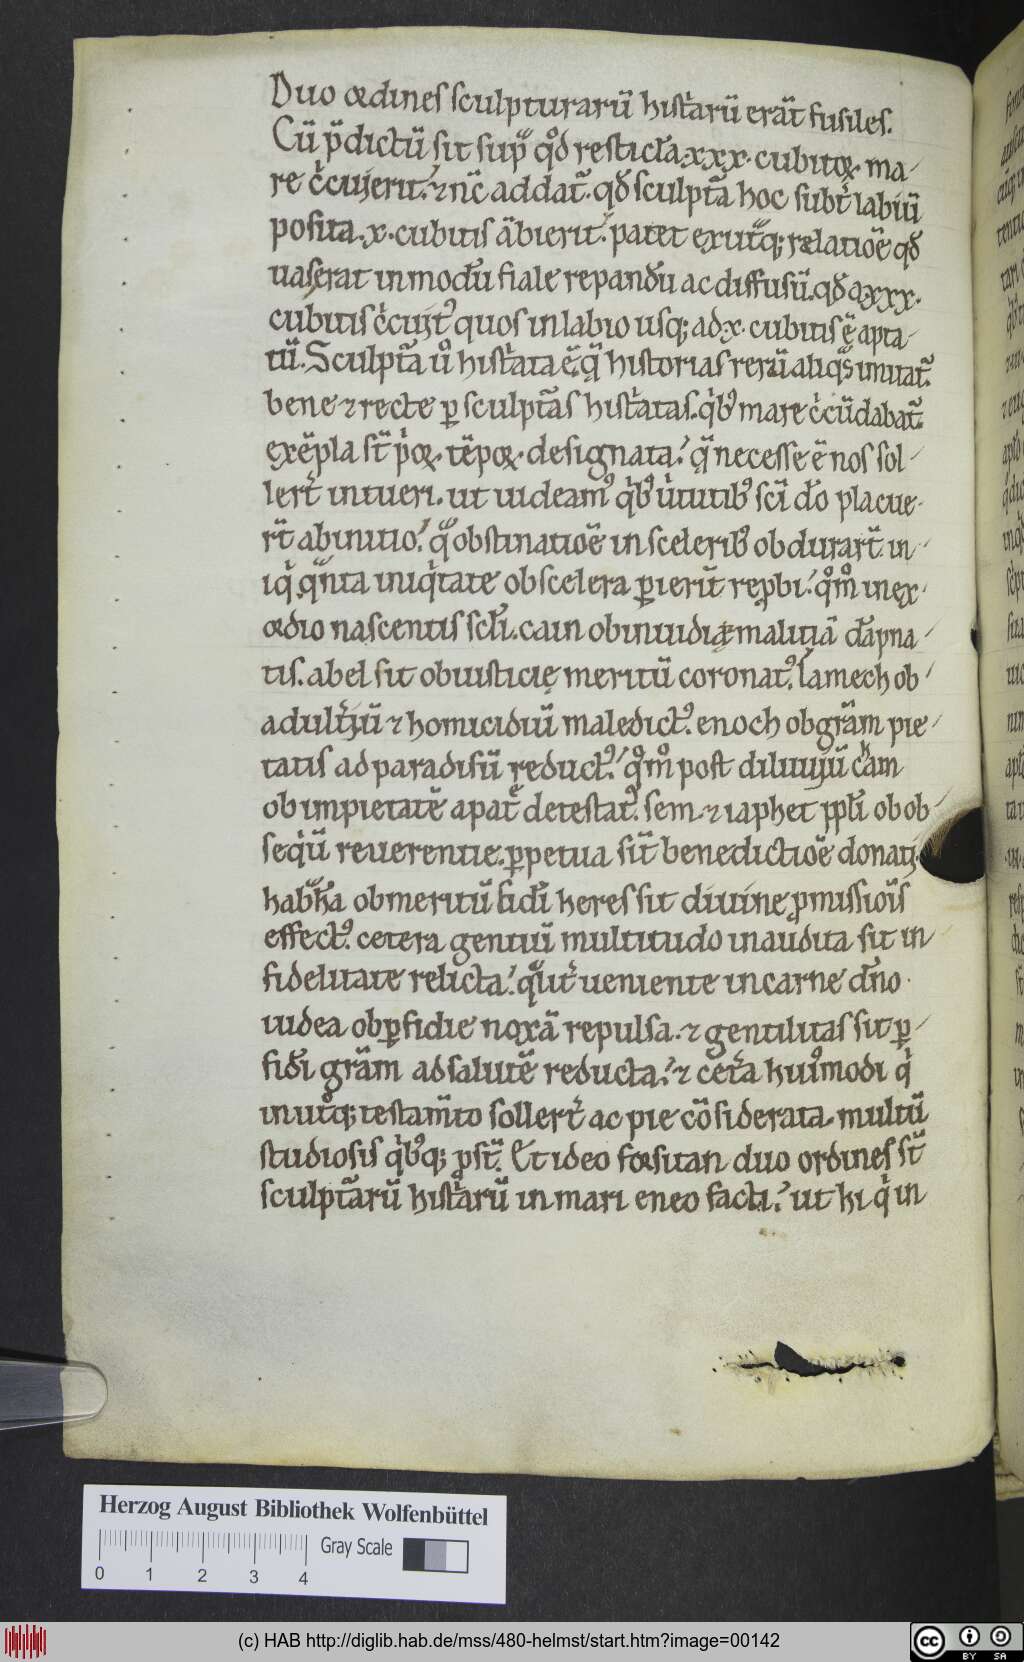 Duo ordines sculpturarū hist̾arū erāt fusiles.
Cū p̄dictū sit sup̄ qđ resticl̄a .xxx. cubitoꝝ ma-
re c̾cuierit. ⁊ nc̄ addat̄. qđ sculpt̄a hoc subt̾ labiū
posita .x. cubitis ābierit. patet exutq; relatiōe qđ
uas erat in modū fiale repandū ac diffusū. qđ a .xxx.
cubitis c̾cuit᷒ quos in labio usq; ad .x. cubitis ē apta-
tū. Sculpt̄a ū hist̾ata ē q̄ historias rerū aliq̄s imitat̄.
bene ⁊ recte ꝑ sculpt̄as hist̾atas. qͥb᷒ mare c̾cūdabat̄.
exēpla st̄ pͥoꝝ. tēpoꝝ. designata. q̄ necesse ē nos sol-
lert̾ intueri. ut uideam᷒ qͥb᷒ uͥtutib᷒ sc̄i do placue-
rt̄ ab initio. q̄ obstinatiōe in sceleribꝰ obdurart̄ in-
iqͥ. q̄nta iniqͥtate ob scelera ꝑierūt rep̄bi. qͦmͦ in ex-
ordio nascentis scl̄i. cain ob inuidię malitiā dāpna-
tis. abel sit ob iusticię meritū coronat᷒. lamech ob-
adult̾iū ⁊ homicidiū maledict᷒. enoch ob grām pie-
tatis ad paradisū reduct᷒. qͦmͦ post diluuiū cham
ob impietatē a pat̾ detestat᷒. sem. ⁊ iaphet ꝓpt̄ ob ob-
seqͥū reuerentie. ꝑpetua sit̄ benedictiōe donati.
hab̄ha ob meritū fidei heres sit diuine ꝓmissiois
effect᷒. cetera gentiū multitudo inaudita sit in
fidelitate relicta. q̄lit̾ ueniente in carne dno.
iudea ob ꝑfidie noxā repulsa. ⁊ gentilitas sit ꝑ
fidei grām ad salutē reducta. ⁊ cet̾a huiͦmodi qͥ
in utͦq; testam̄to sollert̾ ac pie cōsiderata. multū
studiosis qͥb᷒q; ꝓst̄. Et ideo forsitan duo ordines st̄
sculpt̄arū hist̾arū in mari eneo facti. ut hi qͥ in
Herzog August Bibliothek Wolfenbüttel
Gray Scale
0 1 2 3 4
(c) HAB http://diglib.hab.de/mss/480-helmst/start.htm?image=00142
cc BY SA